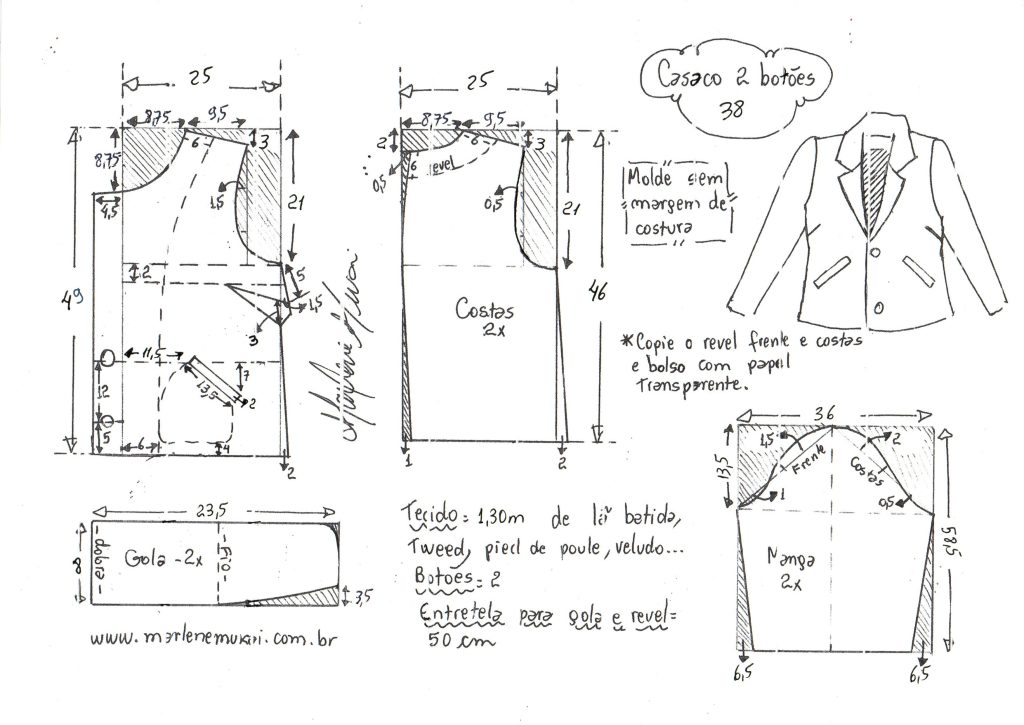 Casaco 2 botões
38
Molde sem
margem de
costura
25
8,75
9,5
8,75
6
3
1,5
21
4,5
2
5
1,5
3
49
11,5
7
13,5
2
12
5
6
4
2
25
8,75
9,5
2
6
3
6
revel
0,5
0,5
21
46
Costas
2x
1
2
*Copie o revel frente e costas
e bolso com papel
transparente.
36
1,5
2
13,5
Frente
Costas
1
0,5
58,5
Manga
2x
6,5
6,5
23,5
8
-dobra-
Gola -2x
-Fio-
3,5
www.marlenemukai.com.br
Tecido = 1,30m de lã batida,
Tweed, pied de poule, veludo...
Botões = 2
Entretela para gola e revel =
50 cm